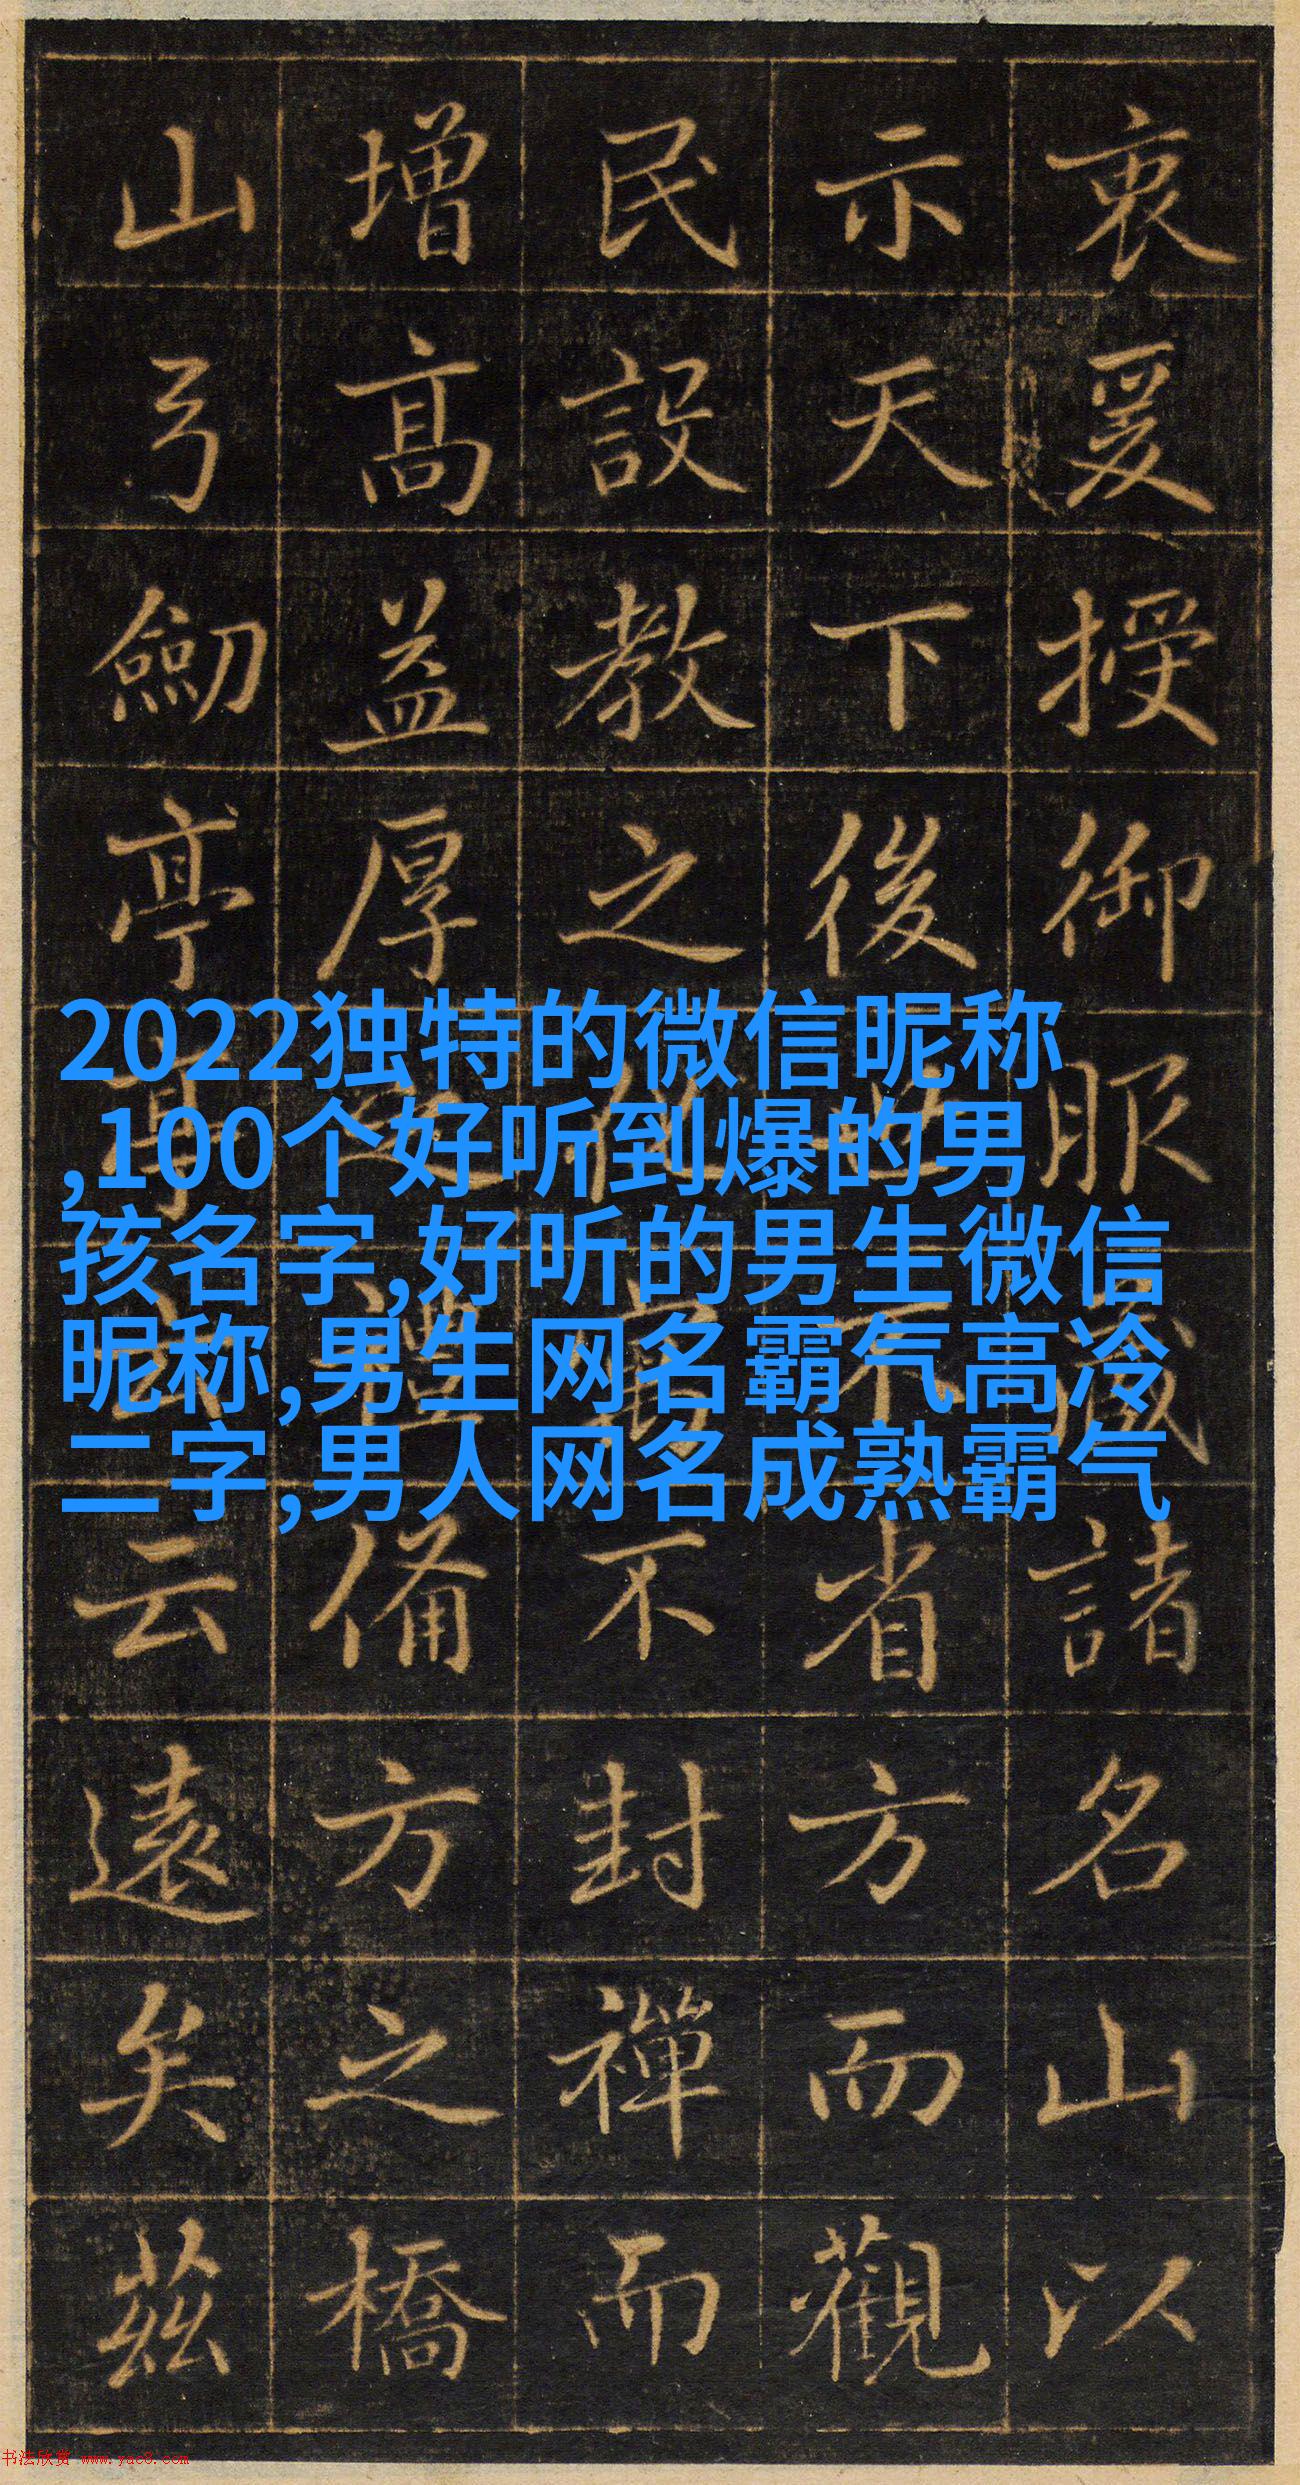 衷爰授御服藏諸名山以
示天下後世不省方而觀
民設教之不封禪而
增高益厚之禮備方之橋
山弓劒亭亭云遠矣茲
2022独特的微信昵称
,100个好听到爆的男
孩名字,好听的男生微信
昵称,男生网名霸气高冷
二字,男人网名成熟霸气
书法欣赏 www.yac8.com